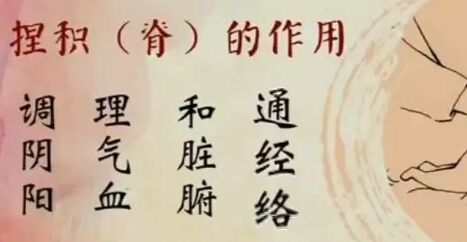 捏积（脊）的作用
调阴阳
理气血
和脏腑
通经络